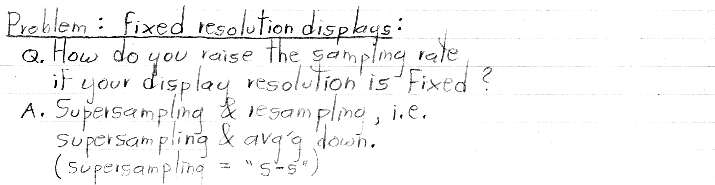 Problem: fixed resolution displays:
Q. How do you raise the sampling rate
if your display resolution is fixed?
A. Supersampling & resampling, i.e.
supersampling & avg'g down.
(supersampling = "s-s")